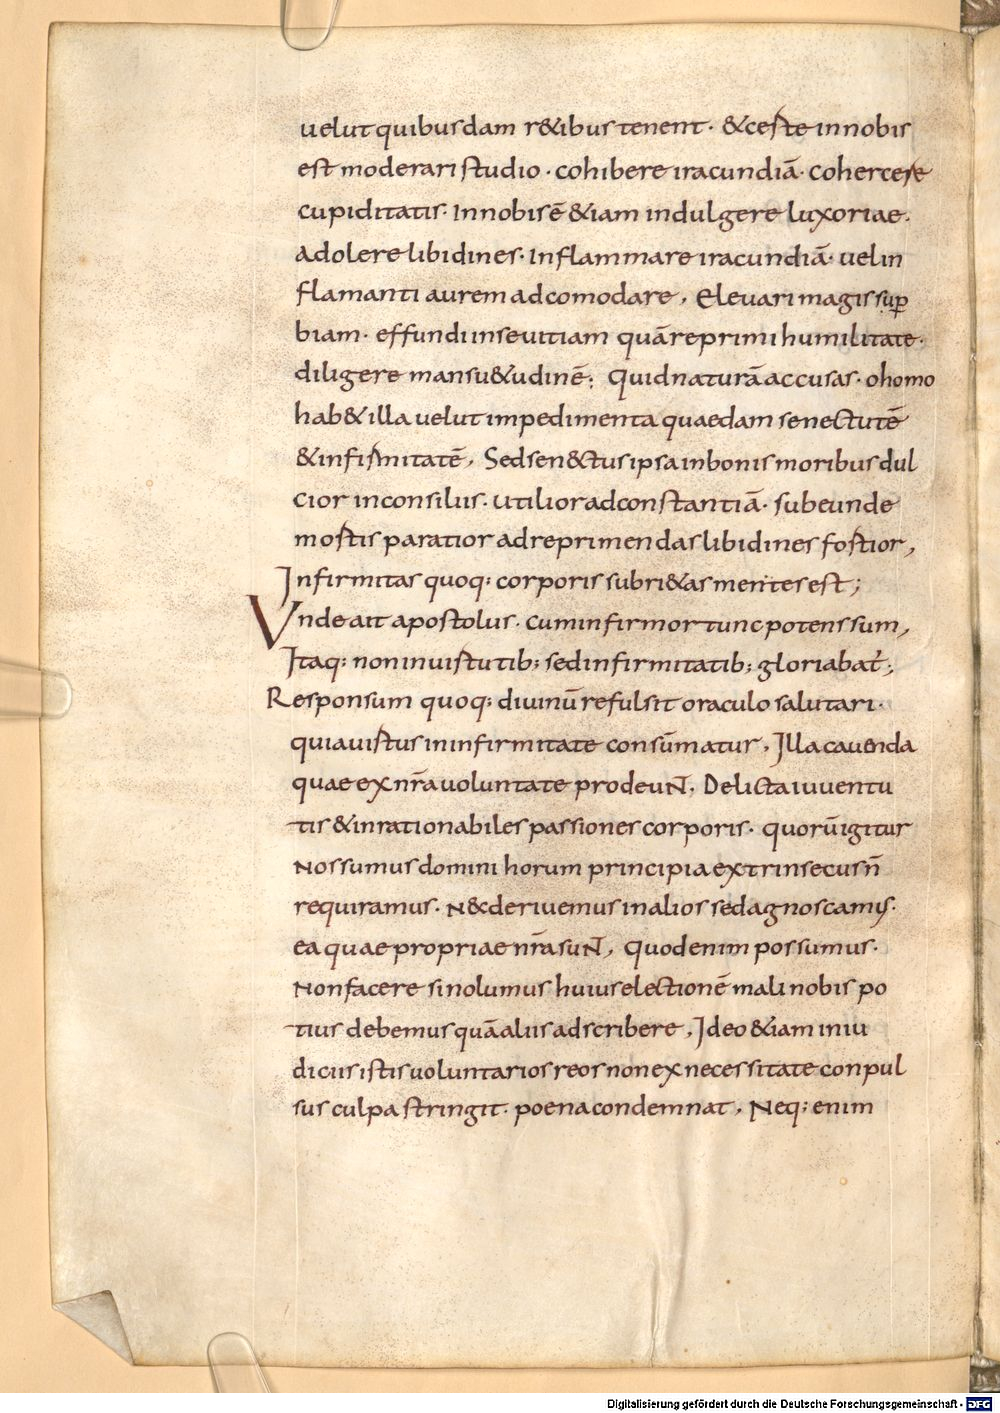 uelut quibusdam r&ibus tenent · & ceste in nobis
est moderari studio · cohibere iracundiā · cohercere
cupiditatis · In nobis ē &iam indulgere luxoriae ·
adolere libidines · Inflammare iracundiā · uel in
flamanti aurem adcomodare , Eleuari magis sup̄
biam · effundi in seuitiam quā reprimi humilitate ·
diligere mansu&udinē ; Quid naturā accusas · o homo
hab& illa uelut impedimenta quaedam senectutē
& infirmitatē , Sed sen&ctus ipsa in bonis moribus dul
cior in consiliis · utilior ad constantiā · subeunde
mortis paratior ad reprimendas libidines fortior ,
Infirmitas quoq; corporis subri&as mentes est ;
Vnde ait apostolus · cum infirmor tunc potens sum ,
Itaq; non in uirtutib; sed in firmitatib; gloriabat̄ ;
Responsum quoq; diuinū refulsit oraculo salutari ·
quia uirtus in infirmitate consūmatur , Illa cauenda
quae ex nr̄a uoluntate prodeuNT , Delicta iuuentu
tis & inrationabiles passiones corporis · quorū igitur
Nos sumus domini horum principia extrinsecus n̄
requiramus · N& deriuemus in alios sed agnoscamus ·
ea quae propriae nr̄a suNT , Quod enim possumus ·
Non facere si nolumus huius electionē mali nobis po
tius debemus quā aliis adscribere , Ideo &iam in iu
diciis istis uoluntarios reos non ex necessitate conpul
sus culpa stringit · poena condemnat , Neq; enim
Digitalisierung gefördert durch die Deutsche Forschungsgemeinschaft - DFG